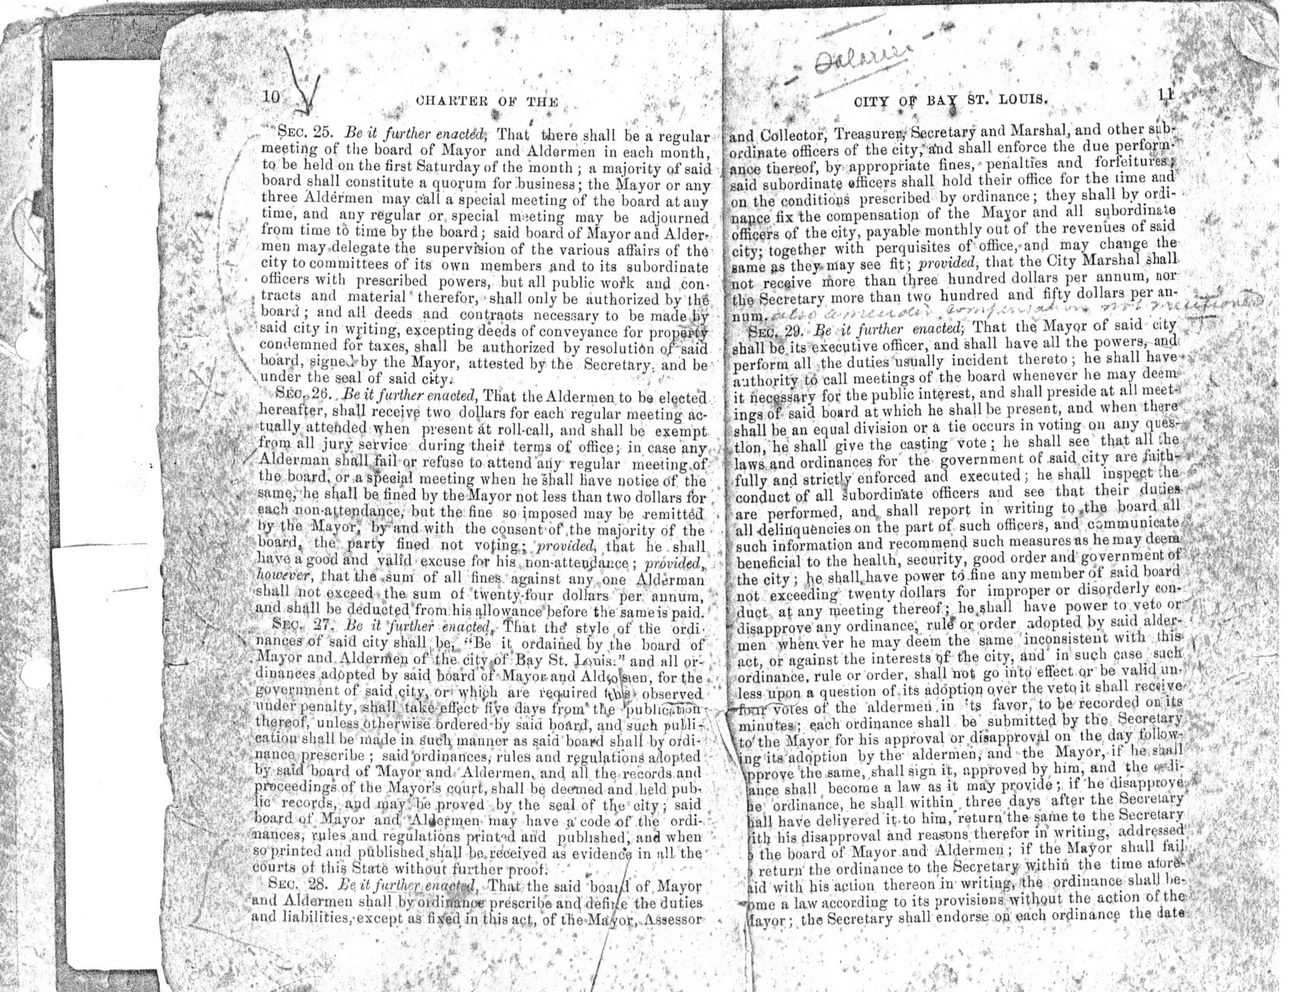 10 CHARTER OF THE
SEC. 25. Be it further enacted, That there shall be a regular
meeting of the board of Mayor and Aldermen in each month,
to be held on the first Saturday of the month ; a majority of said
board shall constitute a quorum for business ; the Mayor or any
three Aldermen may call a special meeting of the board at any
time, and any regular or special meeting may be adjourned
from time to time by the board ; said board of Mayor and Alder-
men may delegate the supervision of the various affairs of the
city to committees of its own members and to its subordinate
officers with prescribed powers, but all public work and con-
tracts and material therefor, shall only be authorized by the
board ; and all deeds and contracts necessary to be made by
said city in writing, excepting deeds of conveyance for property
condemned for taxes, shall be authorized by resolution of said
board, signed by the Mayor, attested by the Secretary, and be
under the seal of said city.
SEC. 26. Be it further enacted, That the Aldermen to be elected
hereafter, shall receive two dollars for each regular meeting ac-
tually attended when present at roll-call, and shall be exempt
from all jury service during their terms of office ; in case any
Alderman shall fail or refuse to attend any regular meeting of
the board, or a special meeting when he shall have notice of the
same, he shall be fined by the Mayor not less than two dollars for
each non-attendance, but the fine so imposed may be remitted
by the Mayor, by and with the consent of the majority of the
board, the party fined not voting ; provided, that he shall
have a good and valid excuse for his non-attendance ; provided,
however, that the sum of all fines against any one Alderman
shall not exceed the sum of twenty-four dollars per annum,
and shall be deducted from his allowance before the same is paid.
SEC. 27. Be it further enacted, That the style of the ordi-
nances of said city shall be, "Be it ordained by the board of
Mayor and Aldermen of the city of Bay St. Louis." and all or-
dinances adopted by said board of Mayor and Aldermen, for the
government of said city, or which are required observed
under penalty, shall take effect five days from the publication
thereof, unless otherwise ordered by said board, and such publi-
cation shall be made in such manner as said board shall by ordi-
nance prescribe ; said ordinances, rules and regulations adopted
by said board of Mayor and Aldermen, and all the records and
proceedings of the Mayor's court, shall be deemed and held pub-
lic records, and may be proved by the seal of the city ; said
board of Mayor and Aldermen may have a code of the ordi-
nances, rules and regulations printed and published, and when
so printed and published shall be received as evidence in all the
courts of this State without further proof.
SEC. 28. Be it further enacted, That the said board of Mayor
and Aldermen shall by ordinance prescribe and define the duties
and liabilities, except as fixed in this act, of the Mayor, Assessor
Salaries
CITY OF BAY ST. LOUIS. 11
and Collector, Treasurer, Secretary and Marshal, and other sub-
ordinate officers of the city, and shall enforce the due perform-
ance thereof, by appropriate fines, penalties and forfeitures ;
said subordinate officers shall hold their office for the time and
on the conditions prescribed by ordinance ; they shall by ordi-
nance fix the compensation of the Mayor and all subordinate
officers of the city, payable monthly out of the revenues of said
city; together with perquisites of office, and may change the
same as they may see fit ; provided, that the City Marshal shall
not receive more than three hundred dollars per annum, nor
the Secretary more than two hundred and fifty dollars per an-
num. also compensation not mentioned
SEC. 29. Be it further enacted; That the Mayor of said city
shall be its executive officer, and shall have all the powers, and
perform all the duties usually incident thereto ; he shall have
authority to call meetings of the board whenever he may deem
it necessary for the public interest, and shall preside at all meet-
ings of said board at which he shall be present, and when there
shall be an equal division or a tie occurs in voting on any ques-
tion, he shall give the casting vote ; he shall see that all the
laws and ordinances for the government of said city are faith-
fully and strictly enforced and executed ; he shall inspect the
conduct of all subordinate officers and see that their duties
are performed, and shall report in writing to the board all
all delinquencies on the part of such officers, and communicate
such information and recommend such measures as he may deem
beneficial to the health, security, good order and government of
the city ; he shall have power to fine any member of said board
not exceeding twenty dollars for improper or disorderly con-
duct at any meeting thereof ; he shall have power to veto or
disapprove any ordinance, rule or order adopted by said alder-
men whenever he may deem the same inconsistent with this
act, or against the interests of the city, and in such case such
ordinance, rule or order, shall not go into effect or be valid un-
less upon a question of its adoption over the veto it shall receive
four votes of the aldermen in its favor, to be recorded on its
minutes ; each ordinance shall be submitted by the Secretary
to the Mayor for his approval or disapproval on the day follow-
ing its adoption by the aldermen, and the Mayor, if he shall
pprove the same, shall sign it, approved by him, and the ordi-
ance shall become a law as it may provide ; if he disapprove
he ordinance, he shall within three days after the Secretary
hall have delivered it to him, return the same to the Secretary
ith his disapproval and reasons therefor in writing, addressed
the board of Mayor and Aldermen ; if the Mayor shall fail
return the ordinance to the Secretary within the time afore-
aid with his action thereon in writing, the ordinance shall be-
ome a law according to its provisions without the action of the
Mayor ; the Secretary shall endorse on each ordinance the date